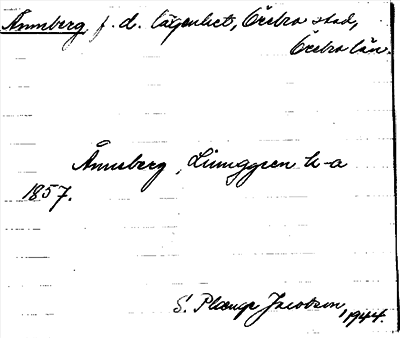 Ånneberg, f. d. lägenhet, Örebro stad,
Örebro län.
Ånneberg, Ljunggren h-a
1857.
S. Plænge Jacobson, 1944.